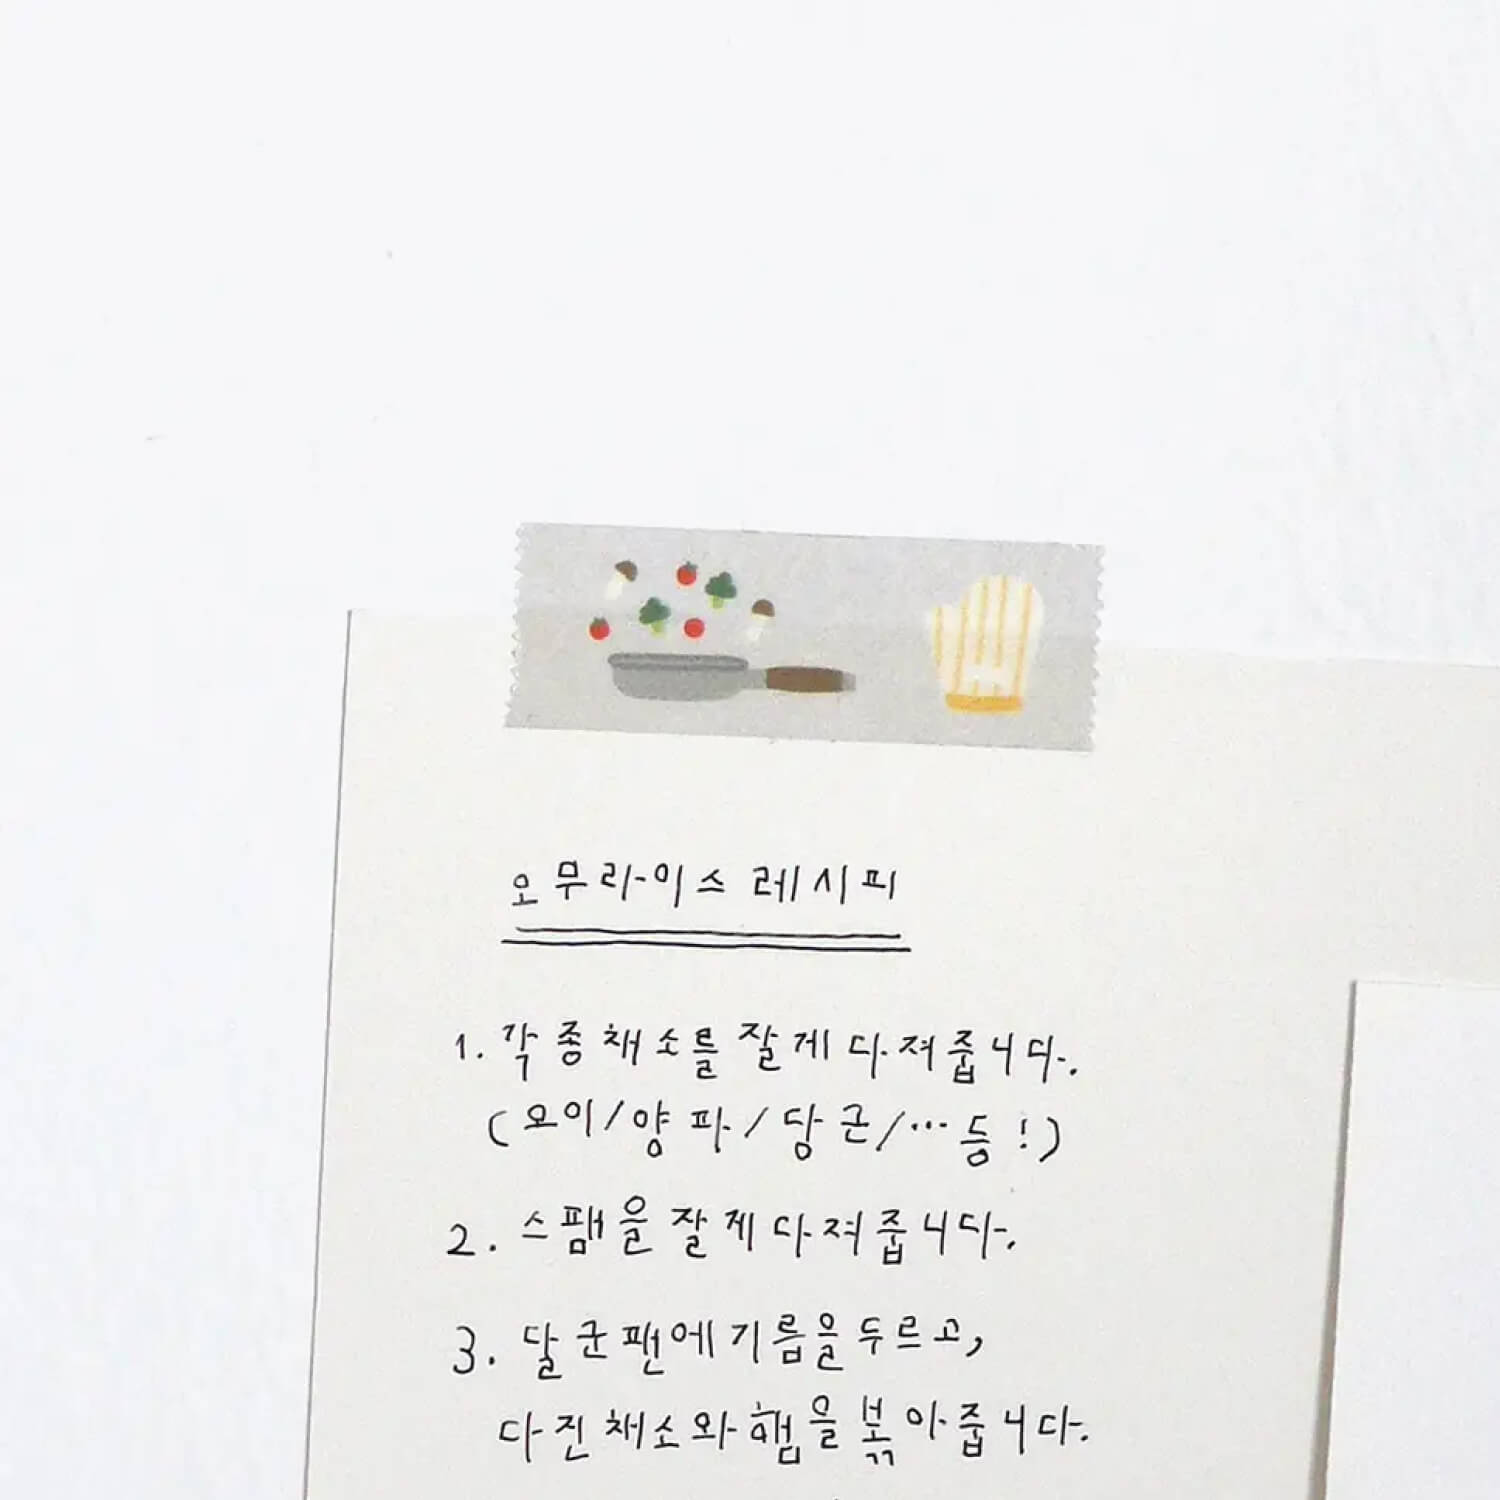 오무라이스 레시피
1. 각종 채소를 잘게 다져줍니다.
(오이/양파/당근/… 등!)
2. 스팸을 잘게 다져줍니다.
3. 달군 팬에 기름을 두르고,
다진 채소와 햄을 볶아줍니다.